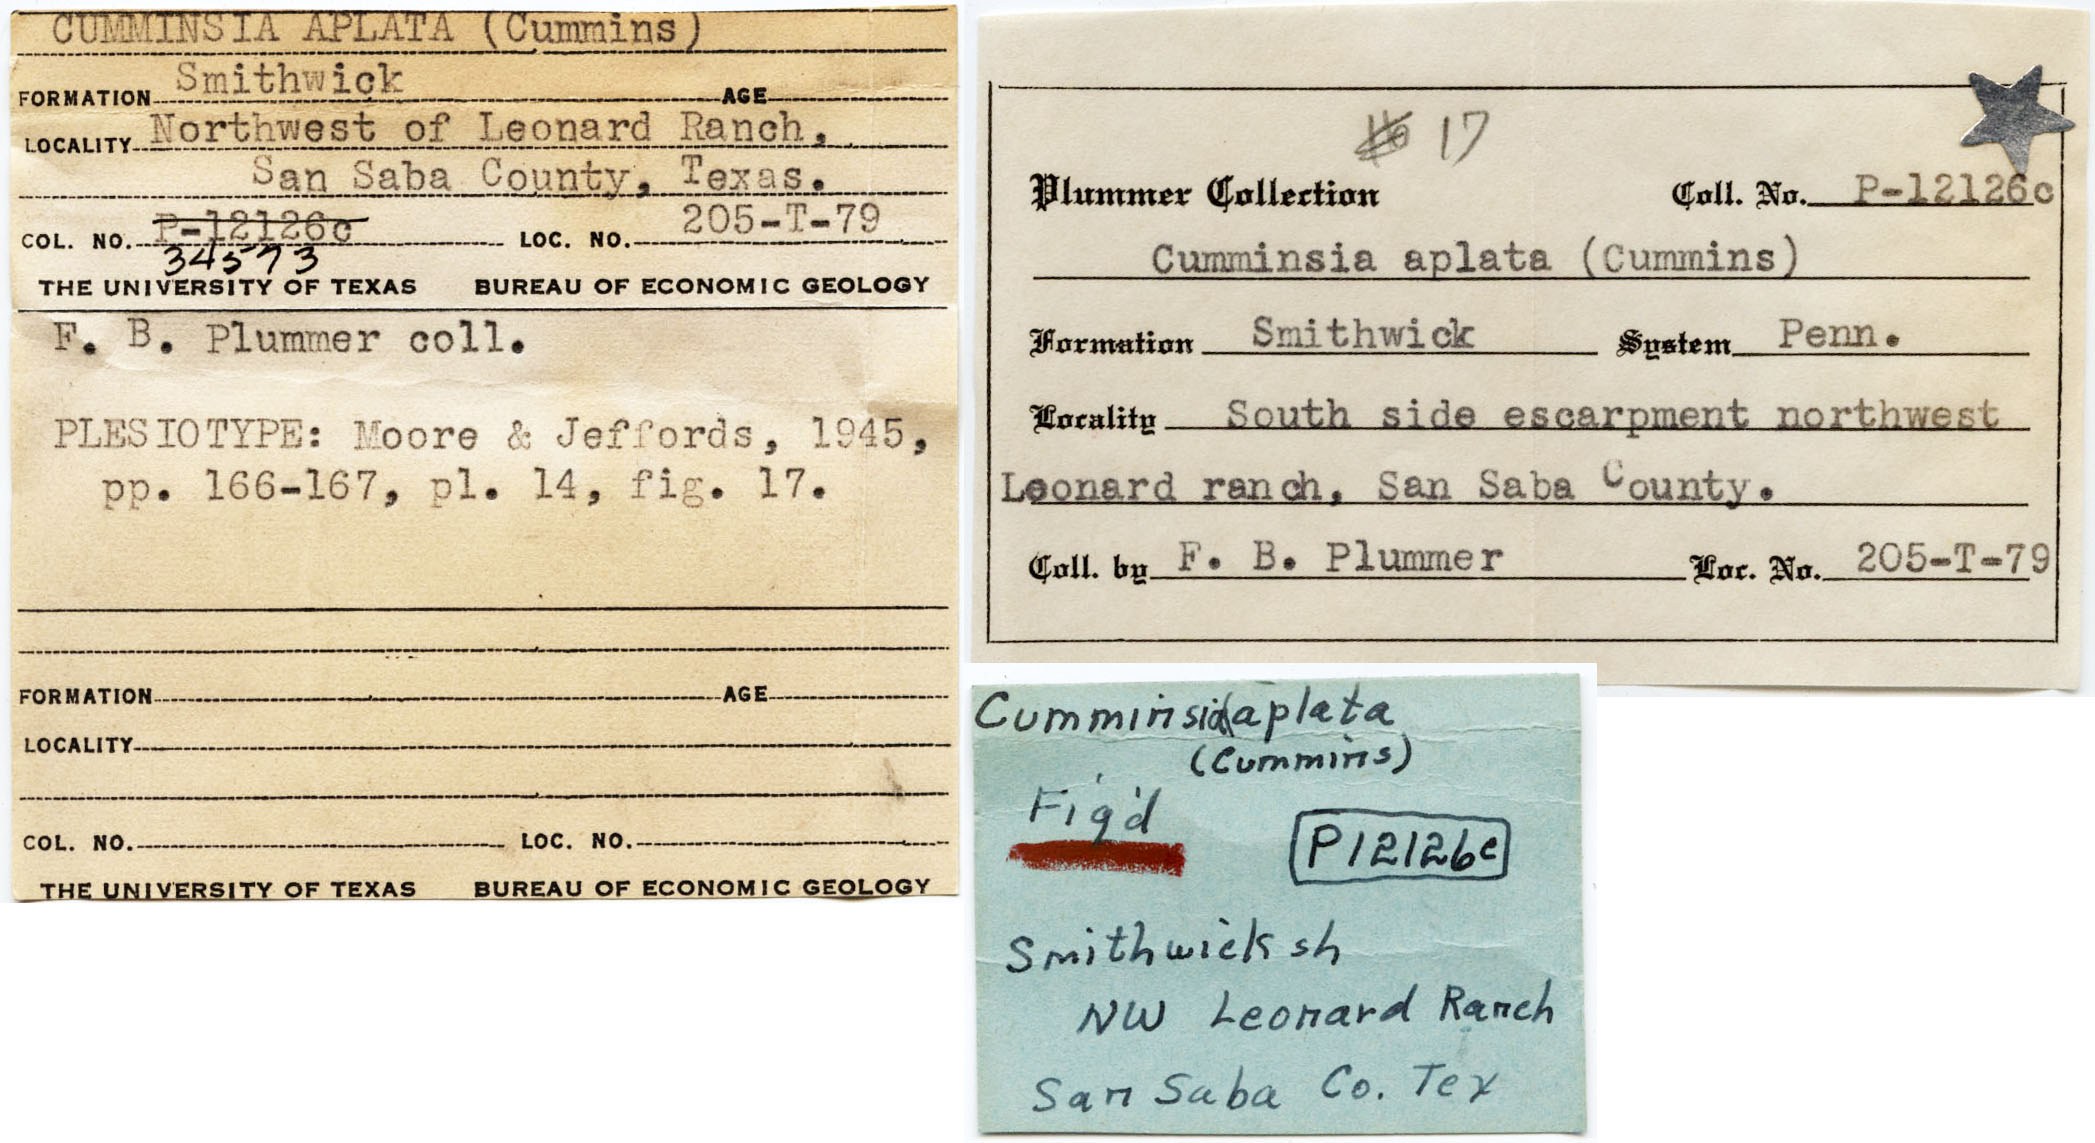 CUMMINSIA APLATA (Cummins)
FORMATION Smithwick AGE
LOCALITY Northwest of Leonard Ranch,
San Saba County, Texas.
COL. NO. P-12126c LOC. NO. 205-T-79
34573
THE UNIVERSITY OF TEXAS BUREAU OF ECONOMIC GEOLOGY
F. B. Plummer coll.
PLESIOTYPE: Moore & Jeffords, 1945,
pp. 166-167, pl. 14, fig. 17.
FORMATION AGE
LOCALITY
COL. NO. LOC. NO.
THE UNIVERSITY OF TEXAS BUREAU OF ECONOMIC GEOLOGY
17
Plummer Collection Coll. No. P-12126c
Cumminsia aplata (Cummins)
Formation Smithwick System Penn.
Locality South side escarpment northwest
Leonard ranch, San Saba County.
Coll. by F. B. Plummer Loc. No. 205-T-79
Cumminsia aplata
(Cummins)
Fig'd
P12126c
Smithwick sh
NW Leonard Ranch
San Saba Co. Tex